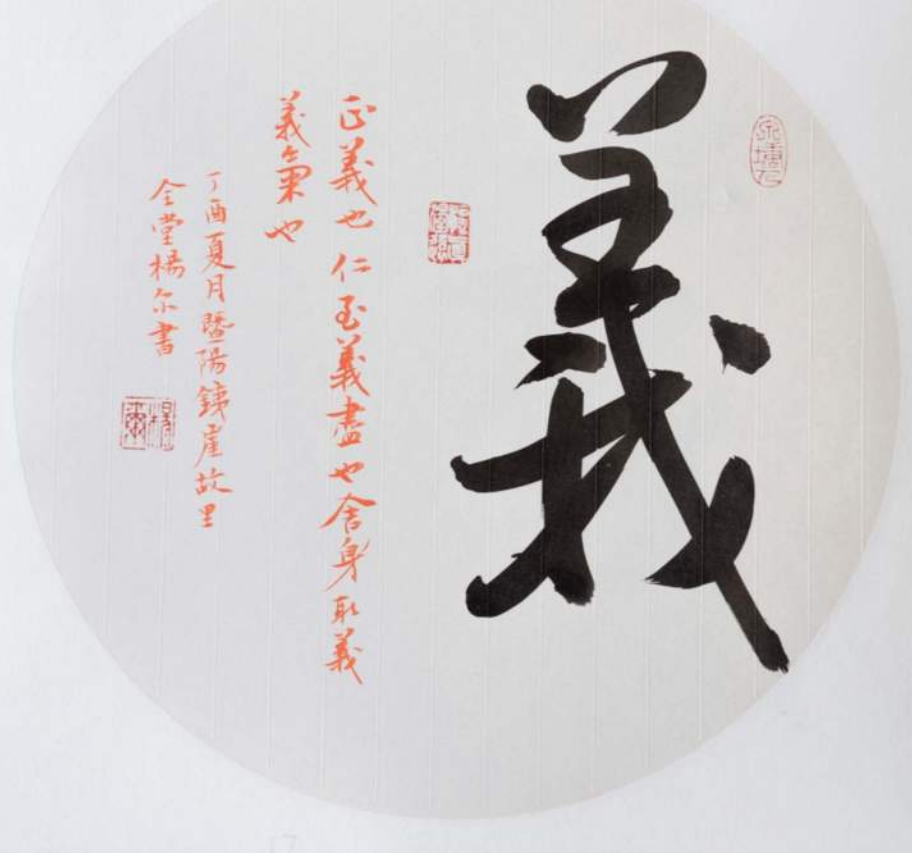 義
正義也仁至義盡也舍身取義
義氣也
丁酉夏月暨陽鐵崖故里
仝堂楊尔書